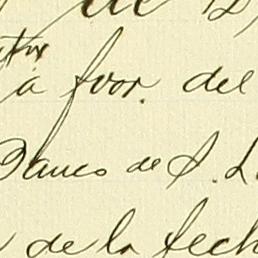 de
á favor del
Banco de S. L
de la fech